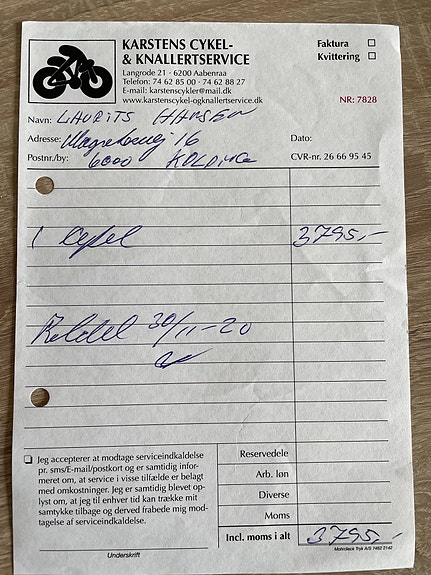 KARSTENS CYKEL-
& KNALLERTSERVICE
Langrode 21 - 6200 Aabenraa
Telefon: 74 62 85 00 - 74 62 88 27
E-mail: karstenscykler@mail.dk
www.karstenscykel-ogknallertservice.dk
Faktura
Kvittering
NR: 7828
Navn: LAURITS HANSEN
Adresse: 16
Dato:
Postnr./by: 6000 KOLDING
CVR-nr. 26 66 95 45
1 Cykel 3795,-
Betalt 30/11-20
Jeg accepterer at modtage serviceindkaldelse
pr. sms/E-mail/postkort og er samtidig infor-
meret om, at service i visse tilfælde er belagt
med omkostninger. Jeg er samtidig blevet op-
lyst om, at jeg til enhver tid kan trække mit
samtykke tilbage og derved frabede mig mod-
tagelse af serviceindkaldelse.
Underskrift
Reservedele
Arb. løn
Diverse
Moms
Incl. moms i alt 3795,-